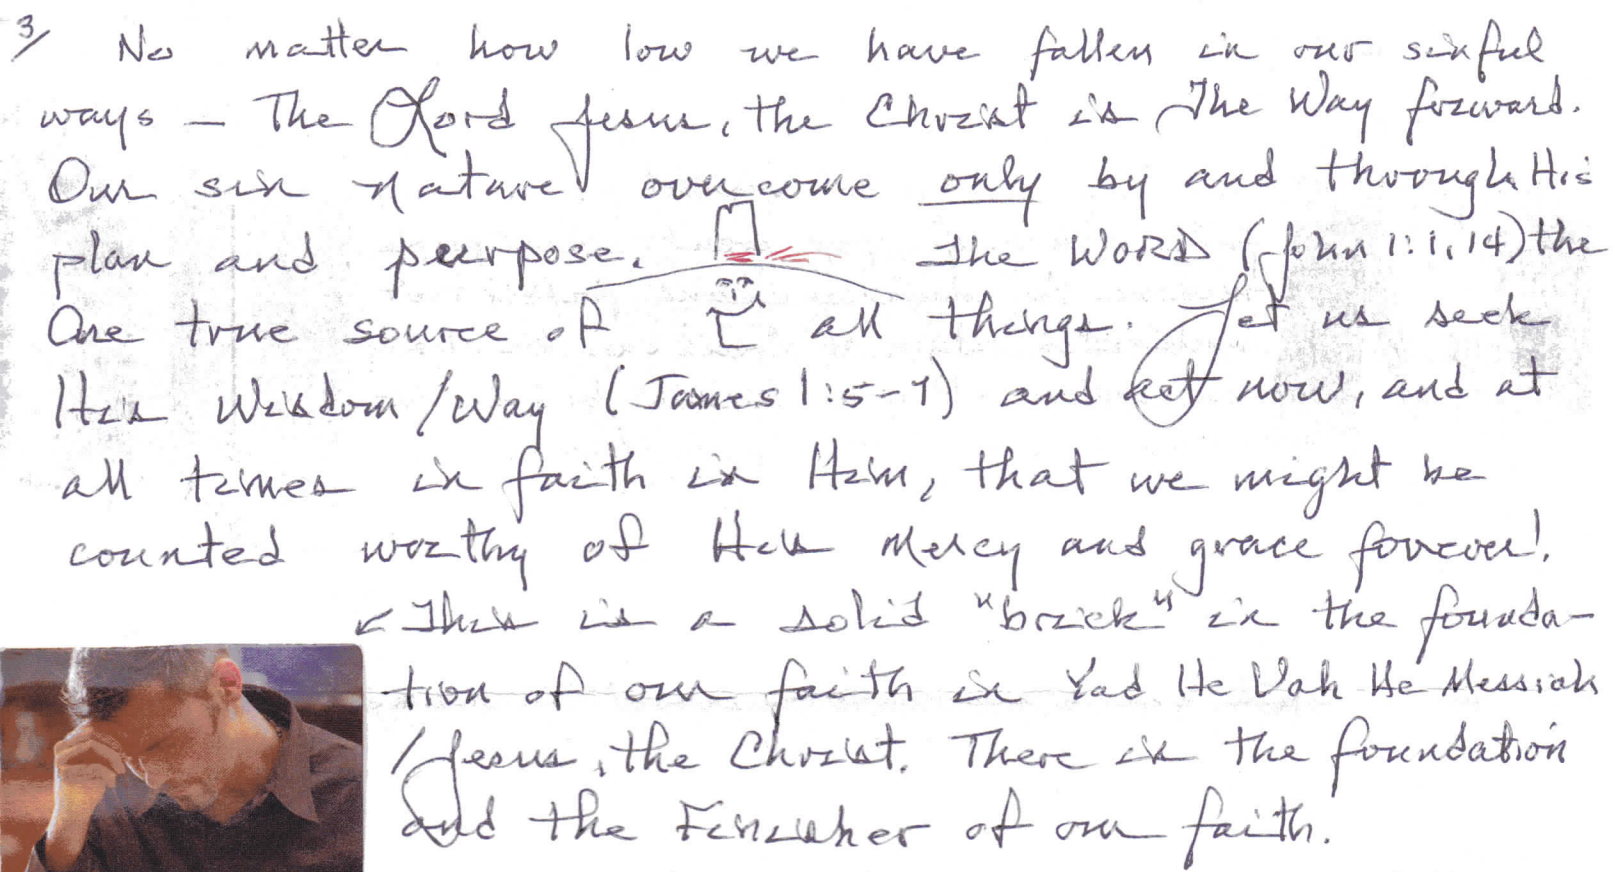 3/ No matter how low we have fallen in our sinful
ways – The Lord Jesus, the Christ is The Way forward.
Our sin nature overcome only by and through His
plan and purpose. The WORD (John 1:1,14) the
One true source of all things. Let us seek
His Wisdom/Way (James 1:5-7) and act now, and at
all times in faith in Him, that we might be
counted worthy of His Mercy and grace forever!
This is a solid "brick" in the founda-
tion of our faith in Yad He Vah He Messiah
/Jesus, the Christ. There is the foundation
and the Finisher of our faith.